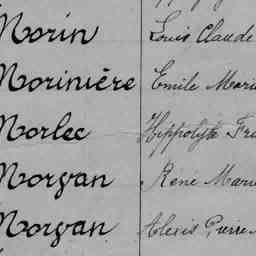 Morin Louis Claude
Morinière Emile Marie
Morlec Hippolyte
Morvan René Marie
Morvan Alexis Pierre